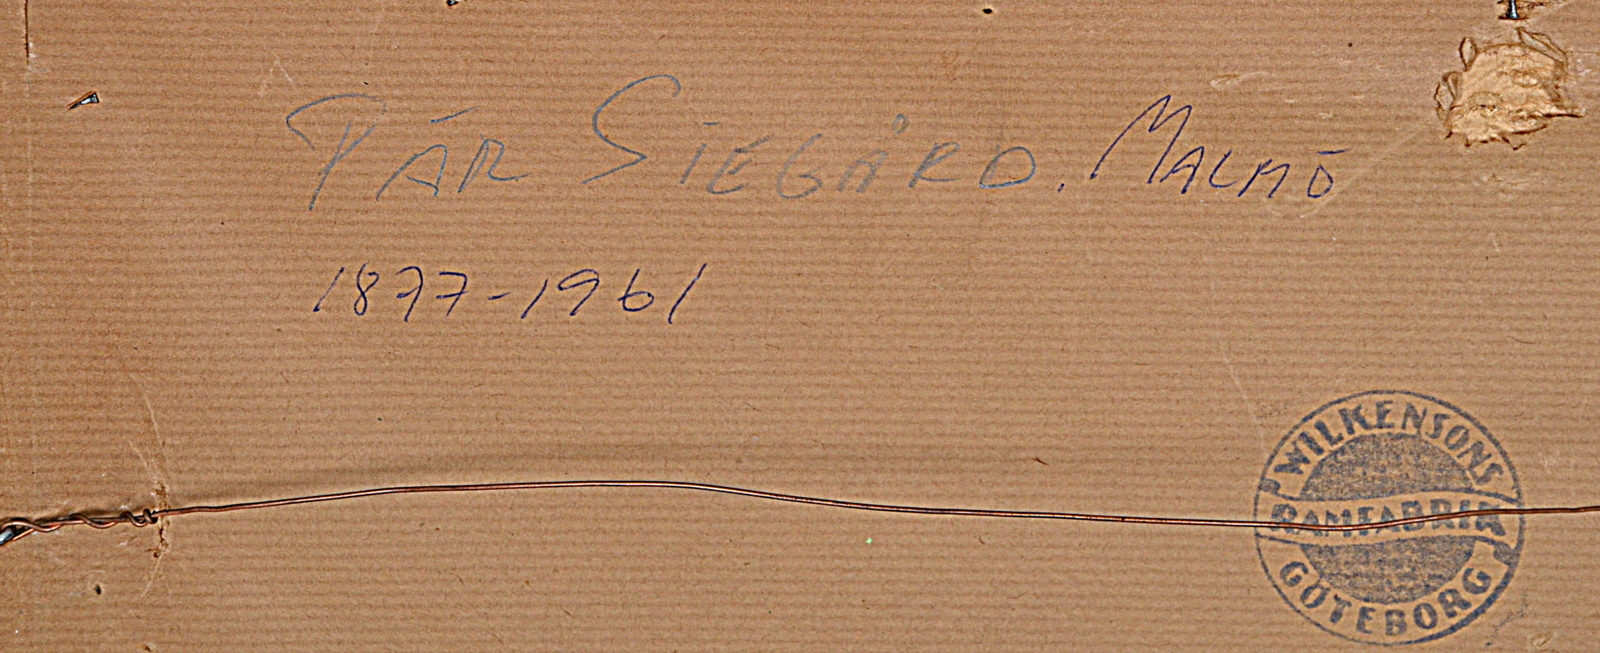 PÄR SIEGÅRD. MALMÖ
1877-1961
WILKENSONS
RAMFABRIK
GÖTEBORG